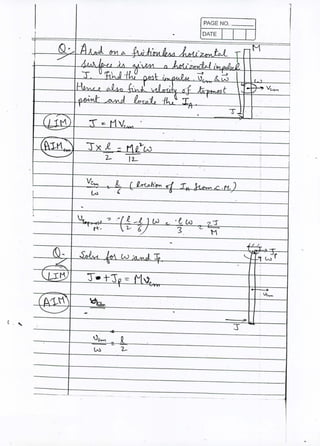 PAGE NO.
DATE
Q. A rod on a frictionless horizontal M
surface is given a horizontal impulse
J. Find the post impulse V⃗cm & ω⃗ ω
Hence also find velocity of topmost Vcm
point and locate the I_A.
J
LIM J = MVcm
AIMcm J × l/2 = Ml²/12 ω
Vcm/ω = l/6 (location of I_A from C.M.)
Q. Solve for ω and J_P. J_P
ω
LIM J + J_P = MVcm
Vcm
AIM
J
Vcm/ω = l/2